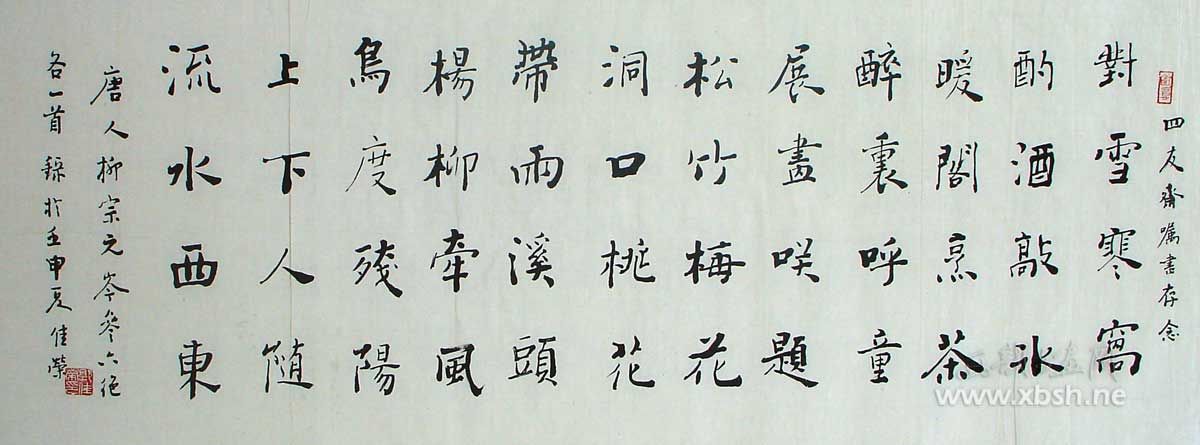 四友齋囑書存念
對雪寒窩
酌酒敲冰
暖閣烹茶
醉裏呼童
展畫咲題
松竹梅花
洞口桃花
帶雨溪頭
楊柳牽風
鳥度殘陽
上下人隨
流水西東
唐人柳宗元岑參六絕
各一首錄於壬申夏佳縈
www.xbsh.ne